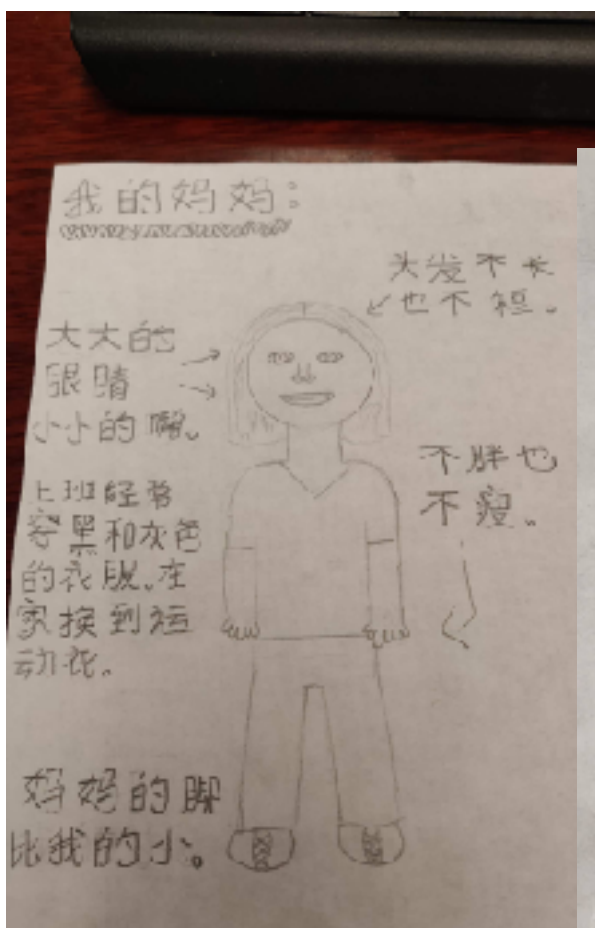 我的妈妈:
头发不长
也不短。
大大的
眼睛
小小的嘴。
不胖也
不瘦。
上班经常
穿黑和灰色
的衣服。在
家换到运
动衣。
妈妈的脚
比我的小。